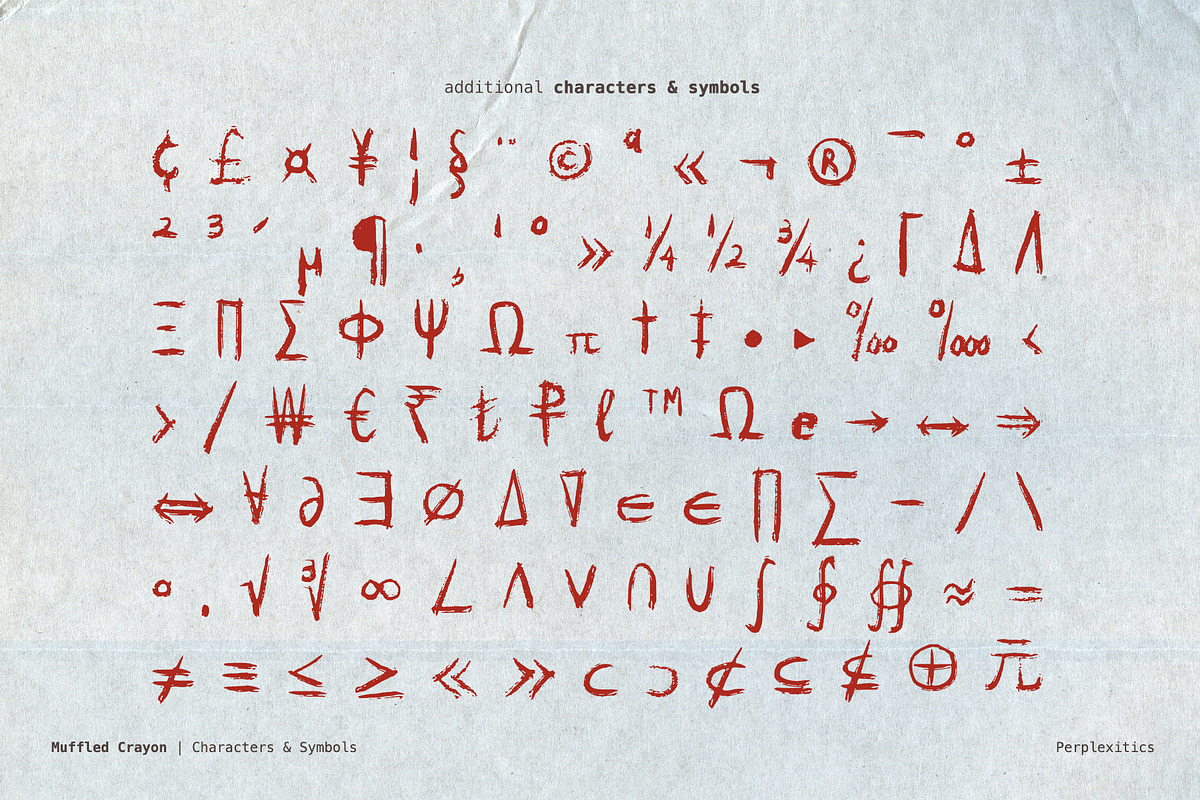 additional characters & symbols
¢ £ ¤ ¥ ¦ § ¨ © ª « ¬ ® ¯ ° ±
² ³ ´ µ ¶ · ¸ ¹ º » ¼ ½ ¾ ¿ Γ Δ Λ
Ξ Π Σ Φ Ψ Ω π † ‡ • ‣ ‰ ‱ ‹
› ⁄ ₩ € ₹ ₺ ₽ ℓ ™ Ω ℮ → ↔ ⇒
⇔ ∀ ∂ ∃ ∅ ∆ ∇ ∈ ∊ ∏ ∑ − ∕ ∖
∘ ∙ √ ∛ ∞ ∠ ∧ ∨ ∩ ∪ ∫ ∮ ∯ ≈ =
≠ ≡ ≤ ≥ ≪ ≫ ⊂ ⊃ ⊄ ⊆ ⊈ ⊕ ℼ
Muffled Crayon | Characters & Symbols
Perplexitics